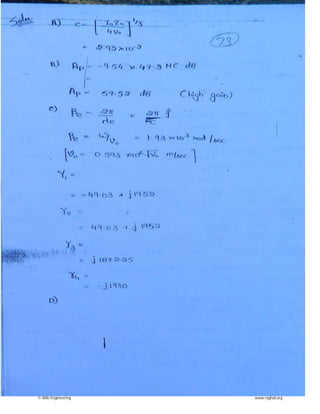 Soln
A) C = [I₀Z₀ / 4V₀]^1/3
= 2.92 × 10⁻²
(73)
B) Ap = -9.54 + 47.3 NC dB
=
Ap = 59.52 dB (high gain)
C) Be = 2π / λe = 2π / f
Be = ω/ϑ₀ = 1.93 × 10³ rad/sec
[ϑ₀ = 0.593 × 10⁶ √V₀ m/sec]
γ₁ =
= -49.03 + j1952
γ₂ =
= 49.03 + j1952
γ₃ =
= j
γ₄ =
= -j1930
D)
© Wiki Engineering www.raghul.org